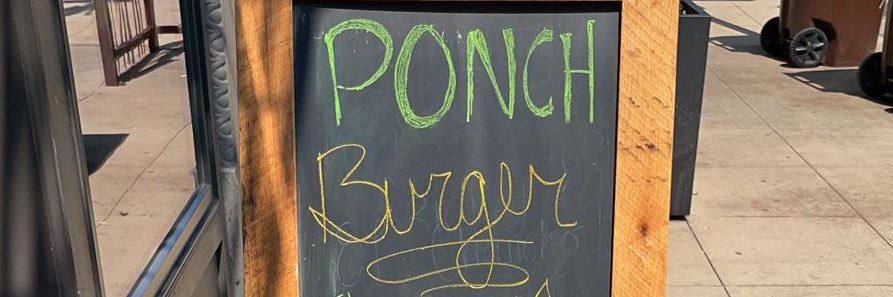 PONCH
Burger